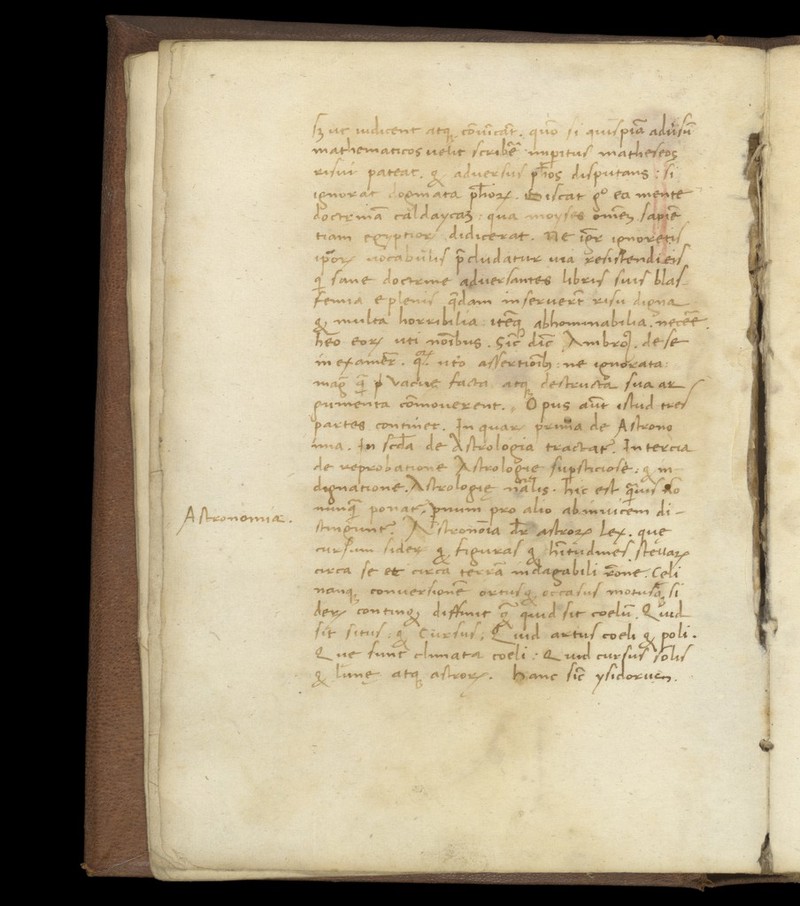 sʒ ut iudicent atq; cōuicāt. quō si quispiā adūsū
mathematicos uelit scribē imperitus matheseos
risui pateat. & adversus phōs disputans: si
ignorat dogmata phōꝝ. Discat gͦ ea mente
doctrinā caldaycaʒ: qua moyses omēʒ sapiē
tiam egyptioꝝ didicerat. Ne ignoretis
ipoꝝ vocabulis p̄cludatur uia resistendi eis
q sane doctrine adversantes libris suis blas
femia e plenis q̄dam inseruert̄ risu digna
& multa horribilia: itēq; abhominabilia. necēē
eoꝝ uti noībus. Sic̄ dic̄ Ambroꝯ. de se
in examer̄. assertionibꝯ: ne ignorata:
maḡ q̄ p vacue facta atq; destructa sua ar
gumenta cōmouerent. Opus aūt istud tres
partes continet. In quaꝝ prima de Astrono
mia. In scd̄a de Astrologia tractat᷑. In tercia
de reprobatione Astrologie suꝑsticiose: & in
dignatione Astrologie nālis. hic est
nunq̄ ponat, ꝑnum pro alio ab inuicem di-
Astronomia.
stingunt᷑. Astronōia dr̄ astroꝝ lex. que
cursum sideꝝ & figuras & hītudines stellaꝝ
circa se et circa terrā indagabili rōne. Celi
nanq; conversionē ortusq; occasus motusq; si
deꝝ continꝫ diffinit q̄ quid sit coelū. Quid
sit situs: & Cursus; Quid artus coeli & poli.
Que sunt climata coeli: Quid cursus solis
& lune atq; astroꝝ. hanc sic̄ ysidorum.